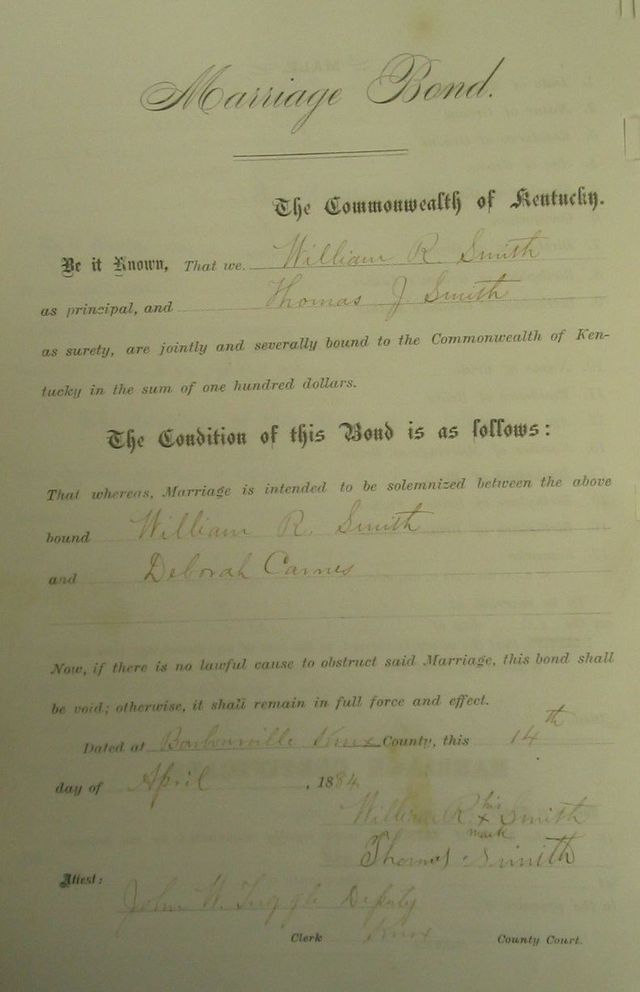 Marriage Bond.
The Commonwealth of Kentucky.
Be it Known, That we. William R. Smith
as principal, and Thomas J. Smith
as surety, are jointly and severally bound to the Commonwealth of Ken-
tucky in the sum of one hundred dollars.
The Condition of this Bond is as follows:
That whereas, Marriage is intended to be solemnized between the above
bound William R. Smith
and Deborah Carnes
Now, if there is no lawful cause to obstruct said Marriage, this bond shall
be void; otherwise, it shall remain in full force and effect.
Dated at Knox County, this 14th
day of April, 1884
William R. his x mark Smith
Thomas Smith
Attest:
John W. Tuggle Deputy
Clerk Knox County Court.